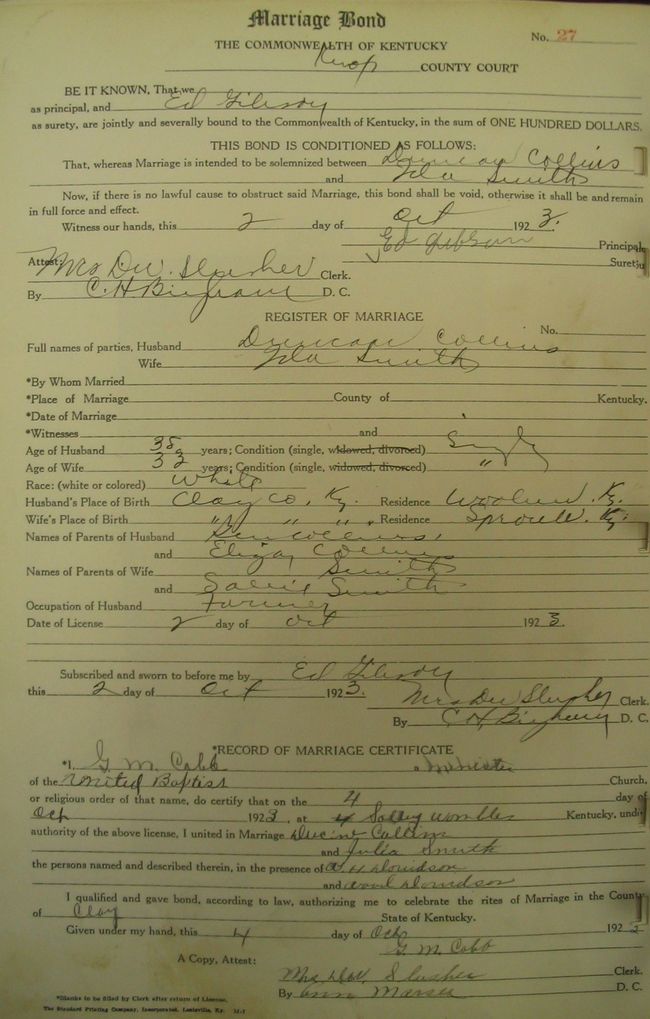 Marriage Bond
No. 27
THE COMMONWEALTH OF KENTUCKY
Knox COUNTY COURT
BE IT KNOWN, That we
as principal, and Ed Gibson
as surety, are jointly and severally bound to the Commonwealth of Kentucky, in the sum of ONE HUNDRED DOLLARS.
THIS BOND IS CONDITIONED AS FOLLOWS:
That, whereas Marriage is intended to be solemnized between Duncan Collins
and Ida Smith
Now, if there is no lawful cause to obstruct said Marriage, this bond shall be void, otherwise it shall be and remain
in full force and effect.
Witness our hands, this 2 day of Oct 1923.
Ed Gibson Principal,
Surety
Attest:
Mrs Dee Slusher Clerk.
By C. H. Bingham D. C.
REGISTER OF MARRIAGE
No.
Full names of parties, Husband Duncan Collins
Wife Ida Smith
*By Whom Married
*Place of Marriage County of Kentucky.
*Date of Marriage
*Witnesses and
Age of Husband 38 years; Condition (single, widowed, divorced) Single
Age of Wife 32 years; Condition (single, widowed, divorced) "
Race: (white or colored) White
Husband's Place of Birth Clay Co, Ky. Residence Ky.
Wife's Place of Birth " " " " Residence Sproule. Ky.
Names of Parents of Husband Collins,
and Eliza Collins
Names of Parents of Wife Smith
and Sallie Smith
Occupation of Husband Farmer
Date of License 2 day of Oct 1923.
Subscribed and sworn to before me by Ed Gibson
this 2 day of Oct 1923.
Mrs Dee Slusher Clerk.
By C. H. Bingham D. C.
*RECORD OF MARRIAGE CERTIFICATE
*I, G. M. Cobb a Minister
of the United Baptist Church,
or religious order of that name, do certify that on the 4 day of
Oct 1923, at Kentucky, under
authority of the above license, I united in Marriage Collins
and Julia Smith
the persons named and described therein, in the presence of Davidson
and Davidson
I qualified and gave bond, according to law, authorizing me to celebrate the rites of Marriage in the County
of Clay State of Kentucky.
Given under my hand, this 4 day of Oct 192
G. M. Cobb
A Copy, Attest:
Mrs. Dee Slusher Clerk.
By D. C.
*Blanks to be filled by Clerk after return of License.
The Standard Printing Company, Incorporated, Louisville, Ky.